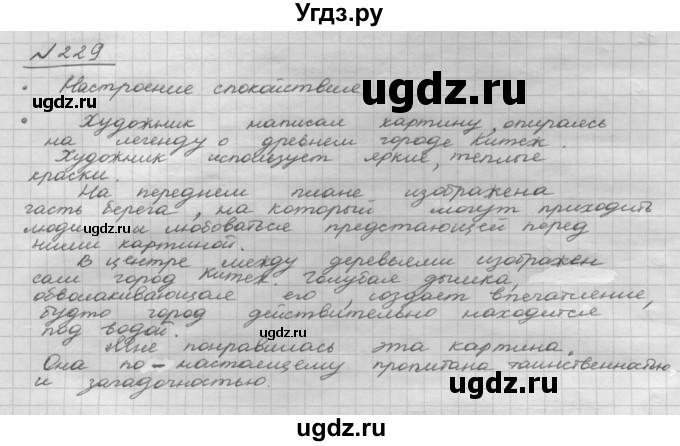 Угдз.ру
№229
• Настроение спокойствие
• Художник написал картину, опираясь
на легенду о древнем городе Китеж.
Художник использует яркие, теплые
краски.
На переднем плане изображена
часть берега, на который могут приходить
люди и любоваться предстающей перед
ними картиной.
В центре между деревьями изображен
сам город Китеж. Голубая дымка,
обволакивающая его, создает впечатление,
будто город действительно находится
под водой.
Мне понравилась эта картина.
Она по-настоящему пропитана таинственностью
и загадочностью.
ugdz.ru
ugdz.ru
ugdz.ru
ugdz.ru
ugdz.ru
ugdz.ru
ugdz.ru
ugdz.ru